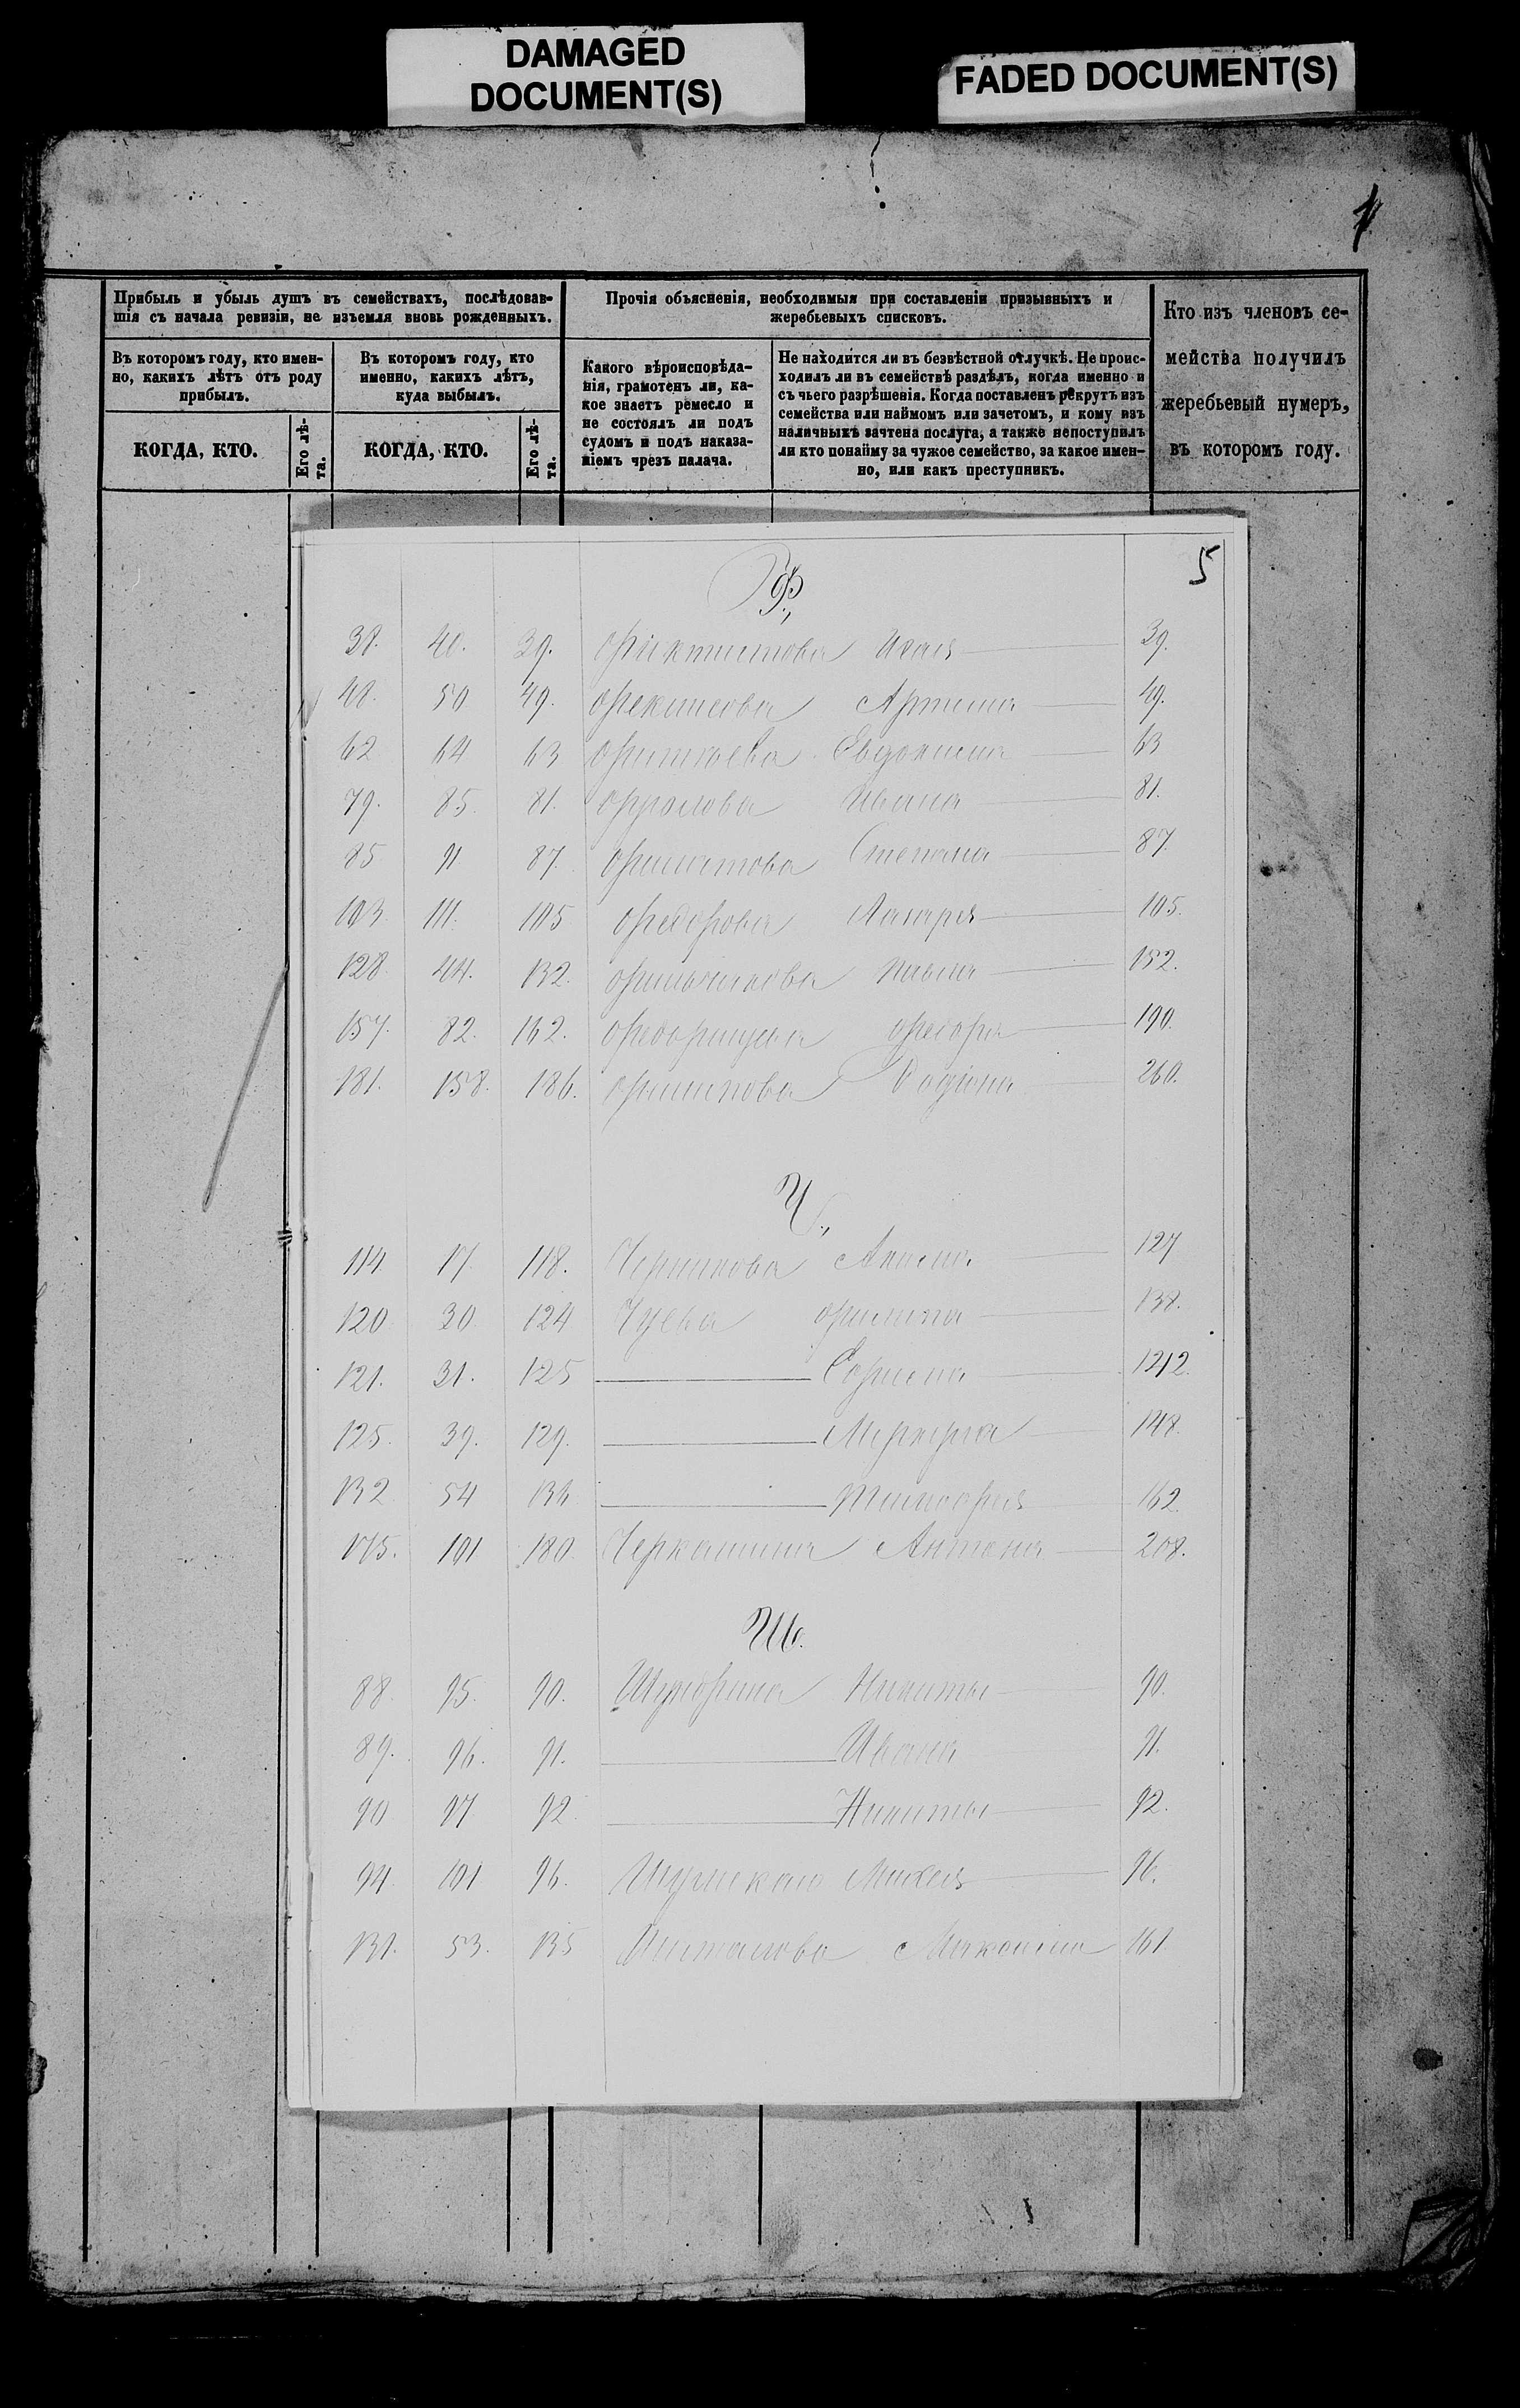 DAMAGED
DOCUMENT(S)
FADED DOCUMENT(S)
Прибыль и убыль душъ въ семействахъ, послѣдовав-
шія съ начала ревизіи, не изъемля вновь рожденныхъ.
Прочія объясненія, необходимыя при составленіи призывныхъ и
жеребьевыхъ списковъ.
Кто изъ членовъ се-
мейства получилъ
жеребьевый нумеръ,
въ которомъ году.
Въ которомъ году, кто имен-
но, какихъ лѣтъ отъ роду
прибылъ.
Въ которомъ году, кто
именно, какихъ лѣтъ,
куда выбылъ.
Какого вѣроисповѣда-
нія, грамотенъ ли, ка-
кое знаетъ ремесло и
не состоялъ ли подъ
судомъ и подъ наказа-
ніемъ чрезъ палача.
Не находится ли въ безвѣстной отлучкѣ. Не проис-
ходилъ ли въ семействѣ раздѣлъ, когда именно и
съ чьего разрѣшенія. Когда поставленъ рекрутъ изъ
семейства или наймомъ или зачетомъ, и кому изъ
наличныхъ зачтена послуга, а также непоступилъ
ли кто понайму за чужое семейство, за какое имен-
но, или какъ преступникъ.
КОГДА, КТО.
Его лѣ-
та.
КОГДА, КТО.
Его лѣ-
та.
5
Ф.
38. 40. 39. Фиктистова 39.
48. 50 49. Фекисова Артема 49.
62 64 63 Евдокима 63
79. 85. 81. Фролова Ивана 81.
85 91 87. Филатова Степана 87.
103. 111. 105 Федорова Лазаря 105.
128. 44. 132. Фильчакова Павла 152.
157. 82. 162. Федорищева Федора 190.
181. 158. 186. Филипова Родіона 260.
Ч.
114 17. 118. Черникова 127
120 30 124 Чуева Филипа 138.
121. 31. 125 1212.
125. 39. 129. Меркурія 148.
132 54 136 Тимофея 162
175. 101 180 Черкашина Антона 208.
Ш.
88. 95. 90. Никиты 90.
89. 96. 91. Ивана 91.
90 97 92 Никиты 92.
94. 101 96. Михея 96.
131. 53. 135 Шаталова Максима 161